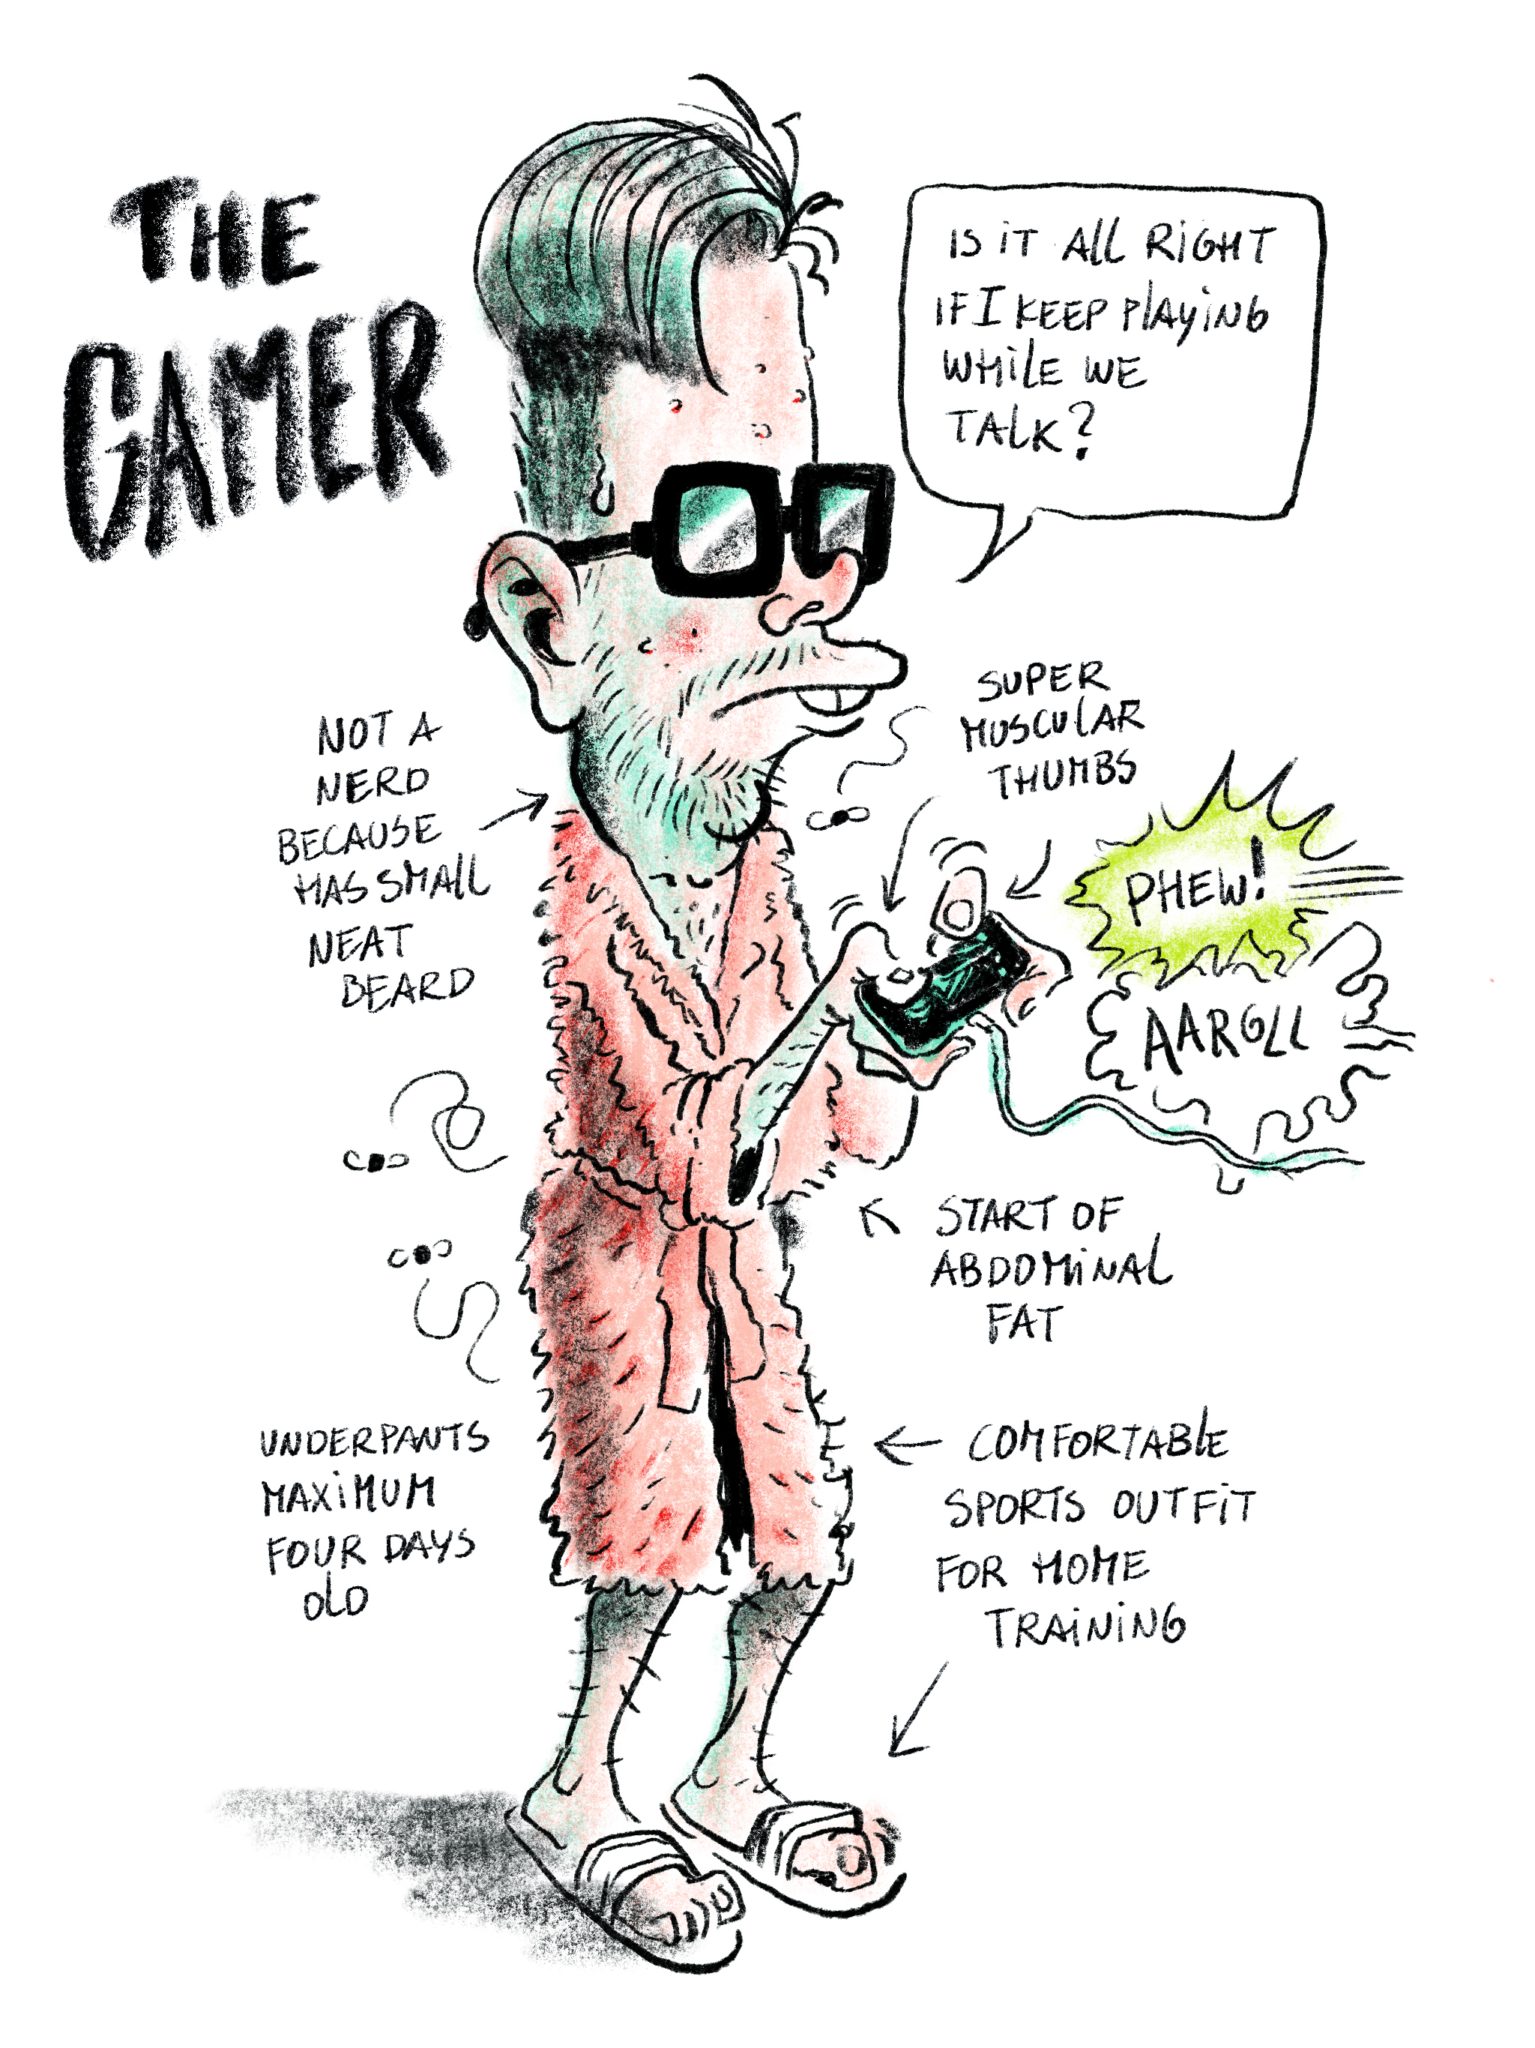 THE
GAMER
IS IT ALL RIGHT
IF I KEEP PLAYING
WHILE WE
TALK?
SUPER
MUSCULAR
THUMBS
NOT A
NERD
BECAUSE
HAS SMALL
NEAT
BEARD
PHEW!
AARGLL
START OF
ABDOMINAL
FAT
UNDERPANTS
MAXIMUM
FOUR DAYS
OLD
COMFORTABLE
SPORTS OUTFIT
FOR HOME
TRAINING